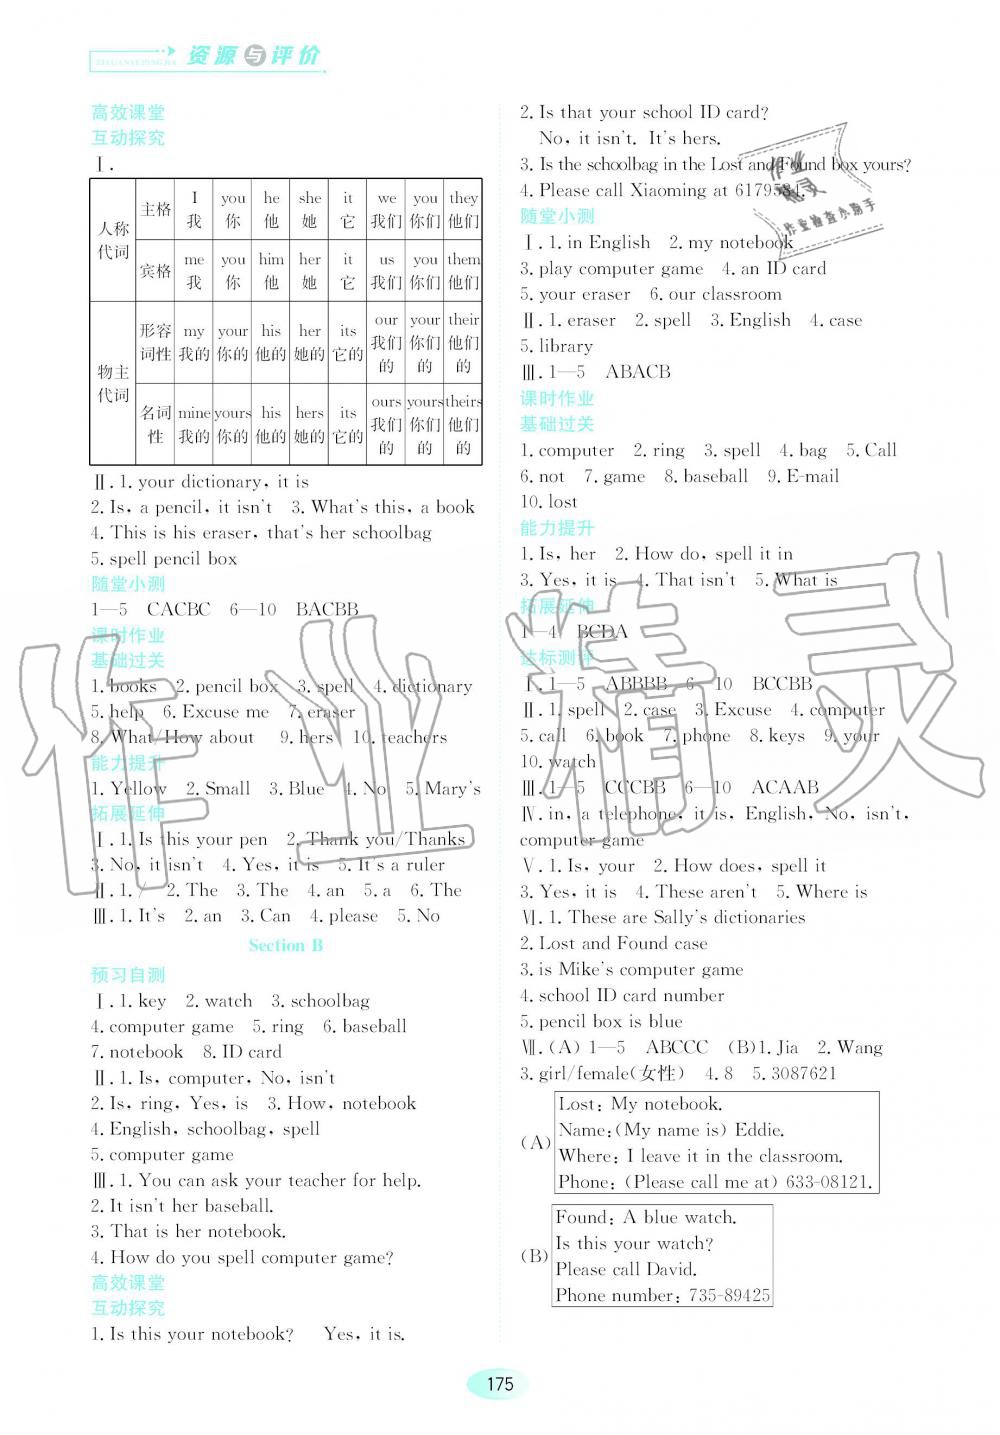 ZIYUANYUPINGJIA 资源与评价
高效课堂
互动探究
Ⅰ.
人称代词 主格 I 我 you 你 he 他 she 她 it 它 we 我们 you 你们 they 他们
宾格 me 我 you 你 him 他 her 她 it 它 us 我们 you 你们 them 他们
物主代词 形容词性 my 我的 your 你的 his 他的 her 她的 its 它的 our 我们的 your 你们的 their 他们的
名词性 mine 我的 yours 你的 his 他的 hers 她的 its 它的 ours 我们的 yours 你们的 theirs 他们的
Ⅱ. 1. your dictionary, it is
2. Is, a pencil, it isn't 3. What's this, a book
4. This is his eraser, that's her schoolbag
5. spell pencil box
随堂小测
1—5 CACBC 6—10 BACBB
课时作业
基础过关
1. books 2. pencil box 3. spell 4. dictionary
5. help 6. Excuse me 7. eraser
8. What/How about 9. hers 10. teachers
能力提升
1. Yellow 2. Small 3. Blue 4. No 5. Mary's
拓展延伸
Ⅰ. 1. Is this your pen 2. Thank you/Thanks
3. No, it isn't 4. Yes, it is 5. It's a ruler
Ⅱ. 1. / 2. The 3. The 4. an 5. a 6. The
Ⅲ. 1. It's 2. an 3. Can 4. please 5. No
Section B
预习自测
Ⅰ. 1. key 2. watch 3. schoolbag
4. computer game 5. ring 6. baseball
7. notebook 8. ID card
Ⅱ. 1. Is, computer, No, isn't
2. Is, ring, Yes, is 3. How, notebook
4. English, schoolbag, spell
5. computer game
Ⅲ. 1. You can ask your teacher for help.
2. It isn't her baseball.
3. That is her notebook.
4. How do you spell computer game?
高效课堂
互动探究
1. Is this your notebook? Yes, it is.
2. Is that your school ID card?
No, it isn't. It's hers.
3. Is the schoolbag in the Lost and Found box yours?
4. Please call Xiaoming at 6179584.
随堂小测
Ⅰ. 1. in English 2. my notebook
3. play computer game 4. an ID card
5. your eraser 6. our classroom
Ⅱ. 1. eraser 2. spell 3. English 4. case
5. library
Ⅲ. 1—5 ABACB
课时作业
基础过关
1. computer 2. ring 3. spell 4. bag 5. Call
6. not 7. game 8. baseball 9. E-mail
10. lost
能力提升
1. Is, her 2. How do, spell it in
3. Yes, it is 4. That isn't 5. What is
拓展延伸
1—4 BCDA
达标测评
Ⅰ. 1—5 ABBBB 6—10 BCCBB
Ⅱ. 1. spell 2. case 3. Excuse 4. computer
5. call 6. book 7. phone 8. keys 9. your
10. watch
Ⅲ. 1—5 CCCBB 6—10 ACAAB
Ⅳ. in, a telephone, it is, English, No, isn't,
computer game
Ⅴ. 1. Is, your 2. How does, spell it
3. Yes, it is 4. These aren't 5. Where is
Ⅵ. 1. These are Sally's dictionaries
2. Lost and Found case
3. is Mike's computer game
4. school ID card number
5. pencil box is blue
Ⅶ. (A) 1—5 ABCCC (B) 1. Jia 2. Wang
3. girl/female(女性) 4. 8 5. 3087621
(A)
Lost: My notebook.
Name: (My name is) Eddie.
Where: I leave it in the classroom.
Phone: (Please call me at) 633-08121.
(B)
Found: A blue watch.
Is this your watch?
Please call David.
Phone number: 735-89425
175
作业精灵
作业
精灵
作业检查小助手